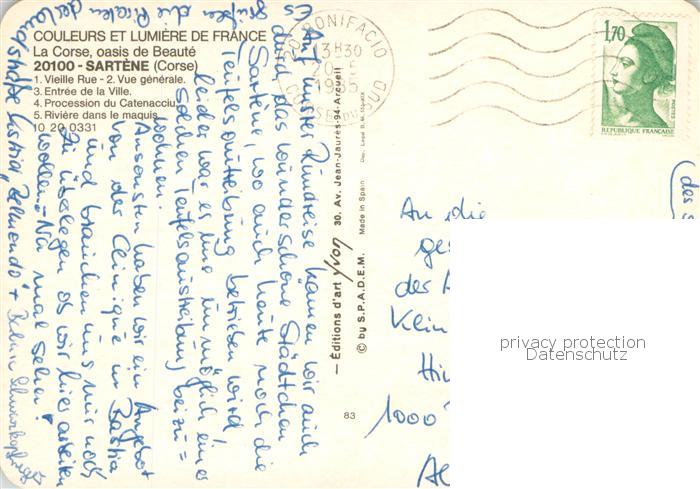 COULEURS ET LUMIÈRE DE FRANCE
La Corse, oasis de Beauté
20100 - SARTÈNE (Corse)
1. Vieille Rue - 2. Vue générale.
3. Entrée de la Ville.
4. Procession du Catenacciu.
5. Rivière dans le maquis.
10 20 0331
BONIFACIO
13H30
CORSE DU SUD
1,70
REPUBLIQUE FRANÇAISE
Auf unserer Rundreise kamen wir auch
durch das wunderschöne Städtchen
Sartène, wo auch heute noch die
Teufelsaustreibung betrieben wird!
Leider war es uns unmöglich einer
solchen Teufelsaustreibung beizu=
wohnen.
Ansonsten haben wir ein Angebot
von der Clinique in Bastia
und brauchen uns nur noch
zu überlegen ob wir hier arbeiten
wollen. - Na mal sehen!
Es grüßen die Piraten der
Landstraße
— Editions d'art Yvon 30, Av. Jean-Jaurès-94-Arcueil
© by S.P.A.D.E.M. Made in Spain
83
An die
der
Klein
1000
privacy protection
Datenschutz